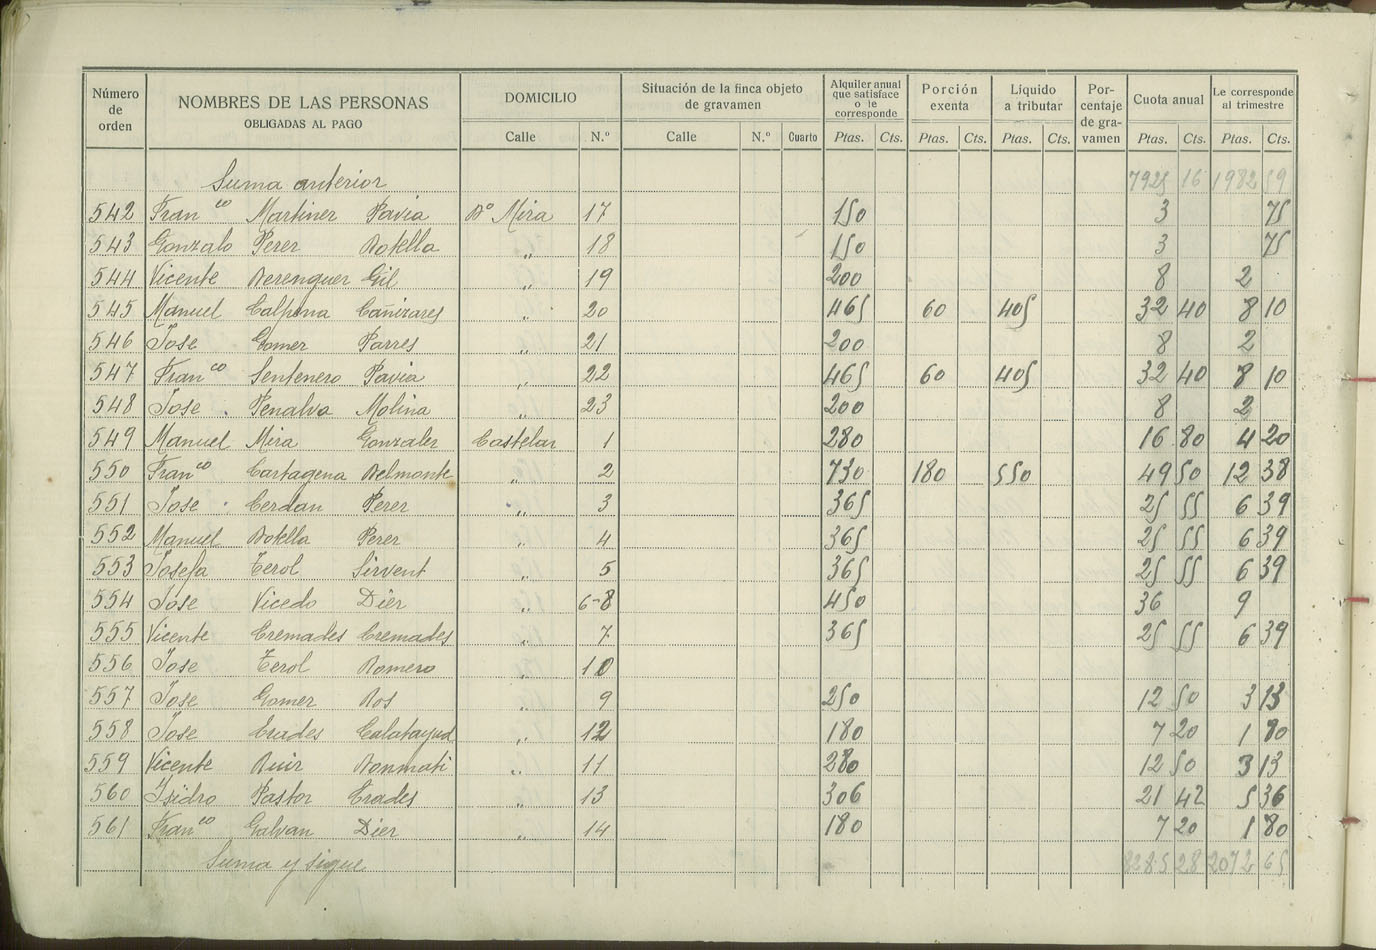 Número de orden | NOMBRES DE LAS PERSONAS OBLIGADAS AL PAGO | DOMICILIO | Situación de la finca objeto de gravamen | Alquiler anual que satisface o le corresponde | Porción exenta | Líquido a tributar | Porcentaje de gravamen | Cuota anual | Le corresponde al trimestre
Calle | N.º | Calle | N.º | Cuarto | Ptas. | Cts. | Ptas. | Cts. | Ptas. | Cts. | Ptas. | Cts. | Ptas. | Cts.
Suma anterior 7925 16 1982 59
542 Franco Martinez Pavia Bº Mira 17 150 3 75
543 Gonzalo Perez Botella „ 18 150 3 75
544 Vicente Berenguer Gil „ 19 200 8 2
545 Manuel Calpena Cañizares „ 20 465 60 405 32 40 8 10
546 Jose Gomez Parres „ 21 200 8 2
547 Franco Sentenero Pavia „ 22 465 60 405 32 40 8 10
548 Jose Penalva Molina „ 23 200 8 2
549 Manuel Mira Gonzalez Castelar 1 280 16 80 4 20
550 Franco Cartagena Belmonte „ 2 730 180 550 49 50 12 38
551 Jose Cerdan Perez „ 3 365 25 55 6 39
552 Manuel Botella Perez „ 4 365 25 55 6 39
553 Josefa Terol Sirvent „ 5 365 25 55 6 39
554 Jose Vicedo Diez „ 6-8 450 36 9
555 Vicente Cremades Cremades „ 7 365 25 55 6 39
556 Jose Terol Romero „ 10
557 Jose Gomez Ros „ 9 250 12 50 3 13
558 Jose Prades Calatayud „ 12 180 7 20 1 80
559 Vicente Ruiz Bonmati „ 11 280 12 50 3 13
560 Isidro Pastor Prades „ 13 306 21 42 5 36
561 Franco Galvan Diez „ 14 180 7 20 1 80
Suma y sigue 8285 28 2072 65